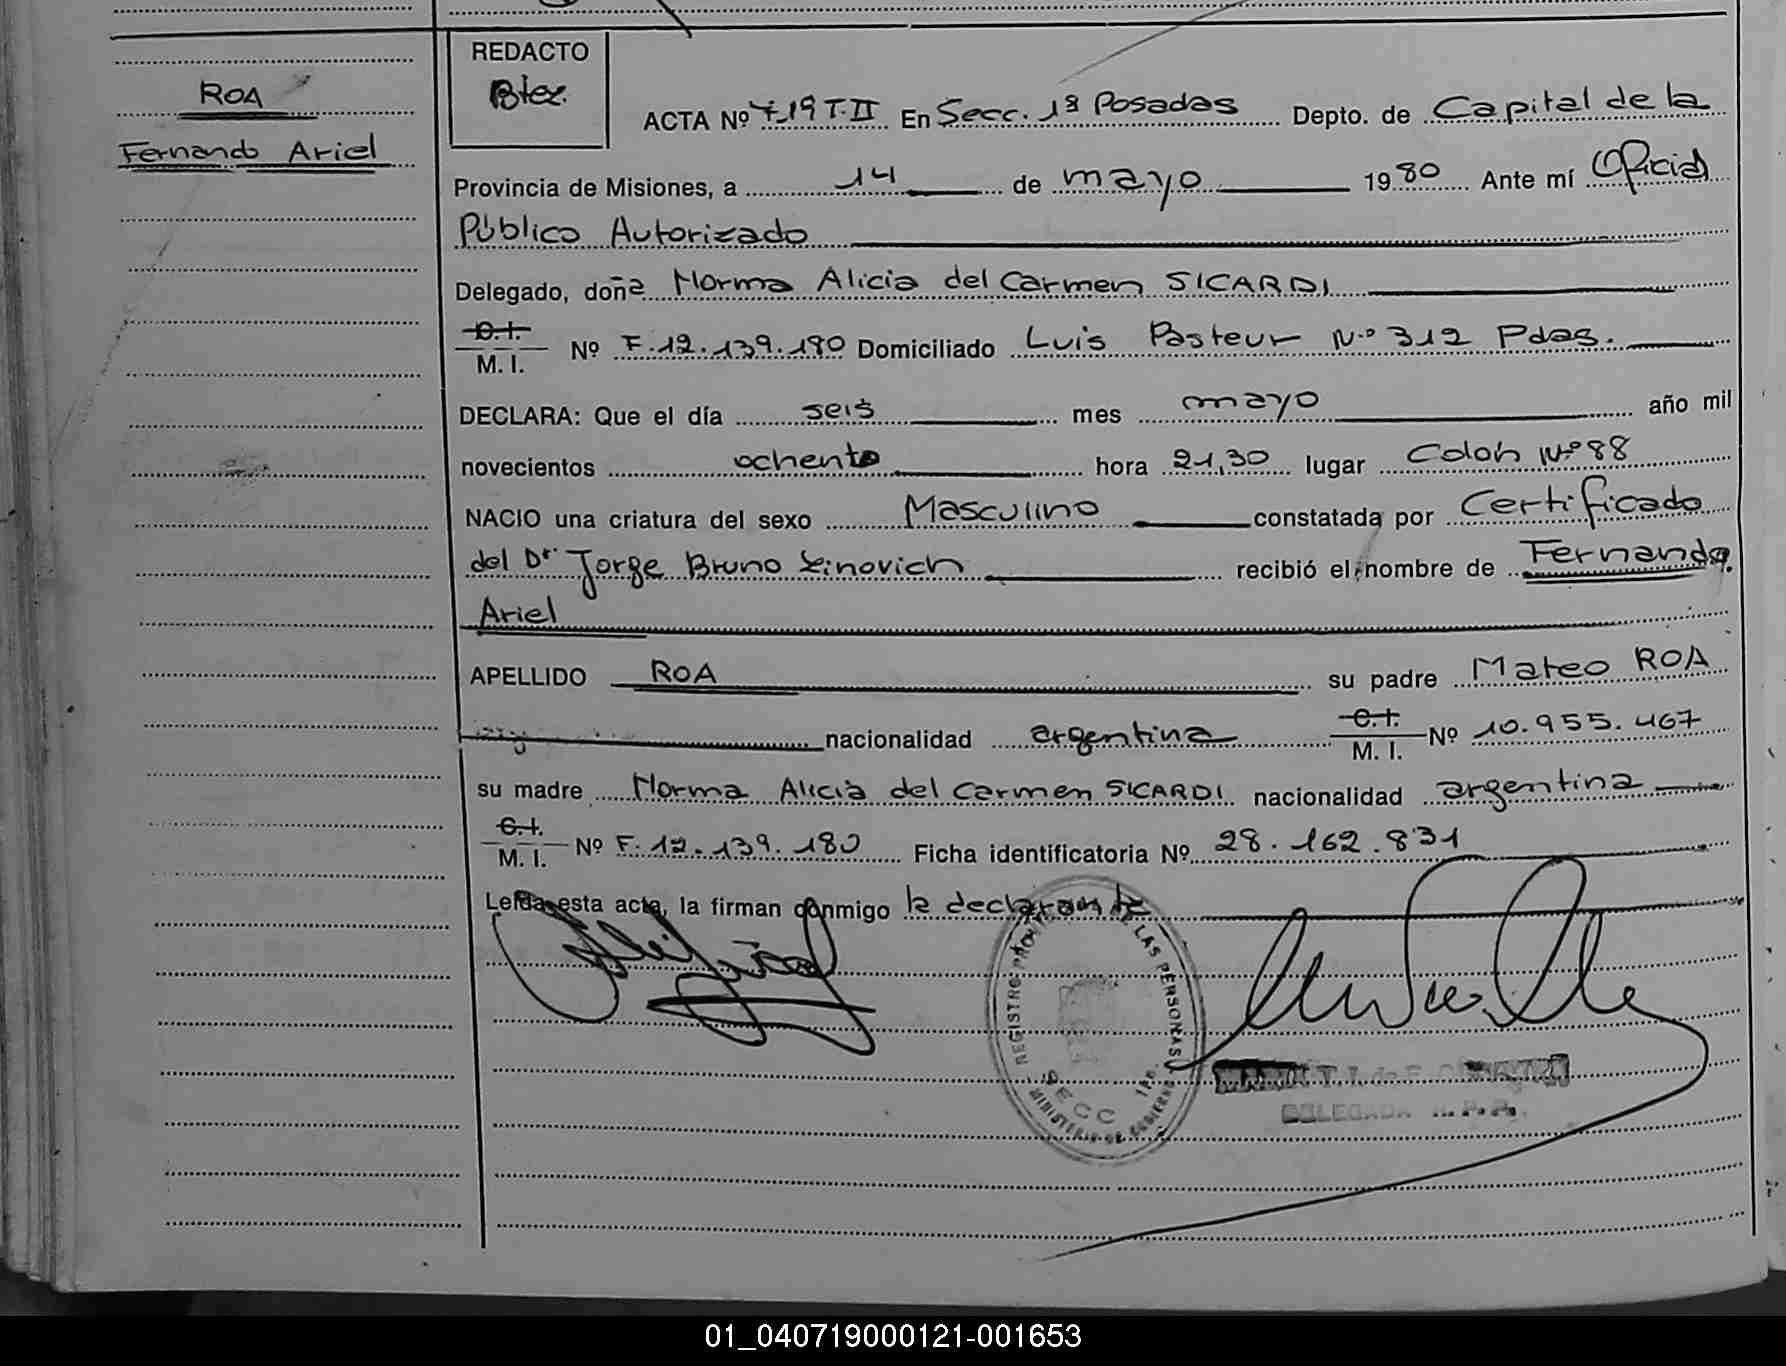 ROA
Fernando Ariel
REDACTO
Btez.
ACTA Nº 719 T.II En Secc. 1ª Posadas Depto. de Capital de la
Provincia de Misiones, a 14 de mayo 1980 Ante mí Oficial
Público Autorizado
Delegado, doña Norma Alicia del Carmen SICARDI
C.I.
M. I. Nº F.12.139.180 Domiciliado Luis Pasteur Nº 312 Pdas.
DECLARA: Que el día seis mes mayo año mil
novecientos ochenta hora 21,30 lugar Colón Nº 88
NACIO una criatura del sexo Masculino constatada por Certificado
del Dr Jorge Bruno recibió el nombre de Fernando
Ariel
APELLIDO ROA su padre Mateo ROA
nacionalidad argentina C.I. M. I. Nº 10.955.467
su madre Norma Alicia del Carmen SICARDI nacionalidad argentina
C.I.
M. I. Nº F.12.139.180 Ficha identificatoria Nº 28.162.831
Leída esta acta, la firman conmigo la declarante
REGISTRO PROV. DE LAS PERSONAS
SECC 1ª
MINISTERIO DE GOBIERNO
MARIA T. I. de F.
DELEGADA R. P. P.
01_040719000121-001653